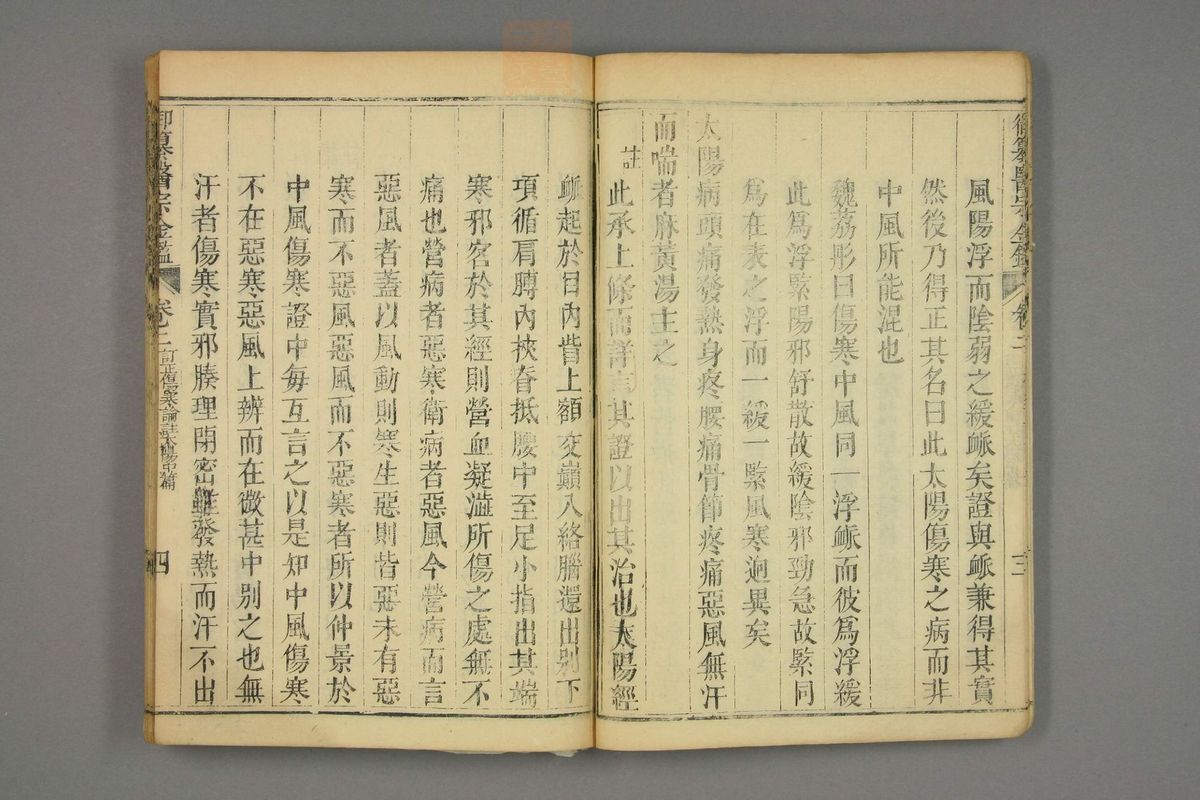 御纂醫宗金鑑 卷二 三
風陽浮而陰弱之緩脈矣證與脈兼得其實
然後乃得正其名曰此太陽傷寒之病而非
中風所能混也
魏荔彤曰傷寒中風同一浮脈而彼爲浮緩
此爲浮緊陽邪舒散故緩陰邪勁急故緊同
爲在表之浮而一緩一緊風寒迥異矣
太陽病頭痛發熱身疼腰痛骨節疼痛惡風無汗
而喘者麻黃湯主之
註此承上條而詳言其證以出其治也太陽經
脈起於目內眥上額交巔入絡腦還出別下
項循肩膊內挾脊抵腰中至足小指出其端
寒邪客於其經則營血凝澁所傷之處無不
痛也營病者惡寒衛病者惡風今營病而言
惡風者蓋以風動則寒生惡則皆惡未有惡
寒而不惡風惡風而不惡寒者所以仲景於
中風傷寒證中每互言之以是知中風傷寒
不在惡寒惡風上辨而在微甚中別之也無
汗者傷寒實邪腠理閉密雖發熱而汗不出
御纂醫宗金鑑 卷二 訂正傷寒論註太陽中篇 四